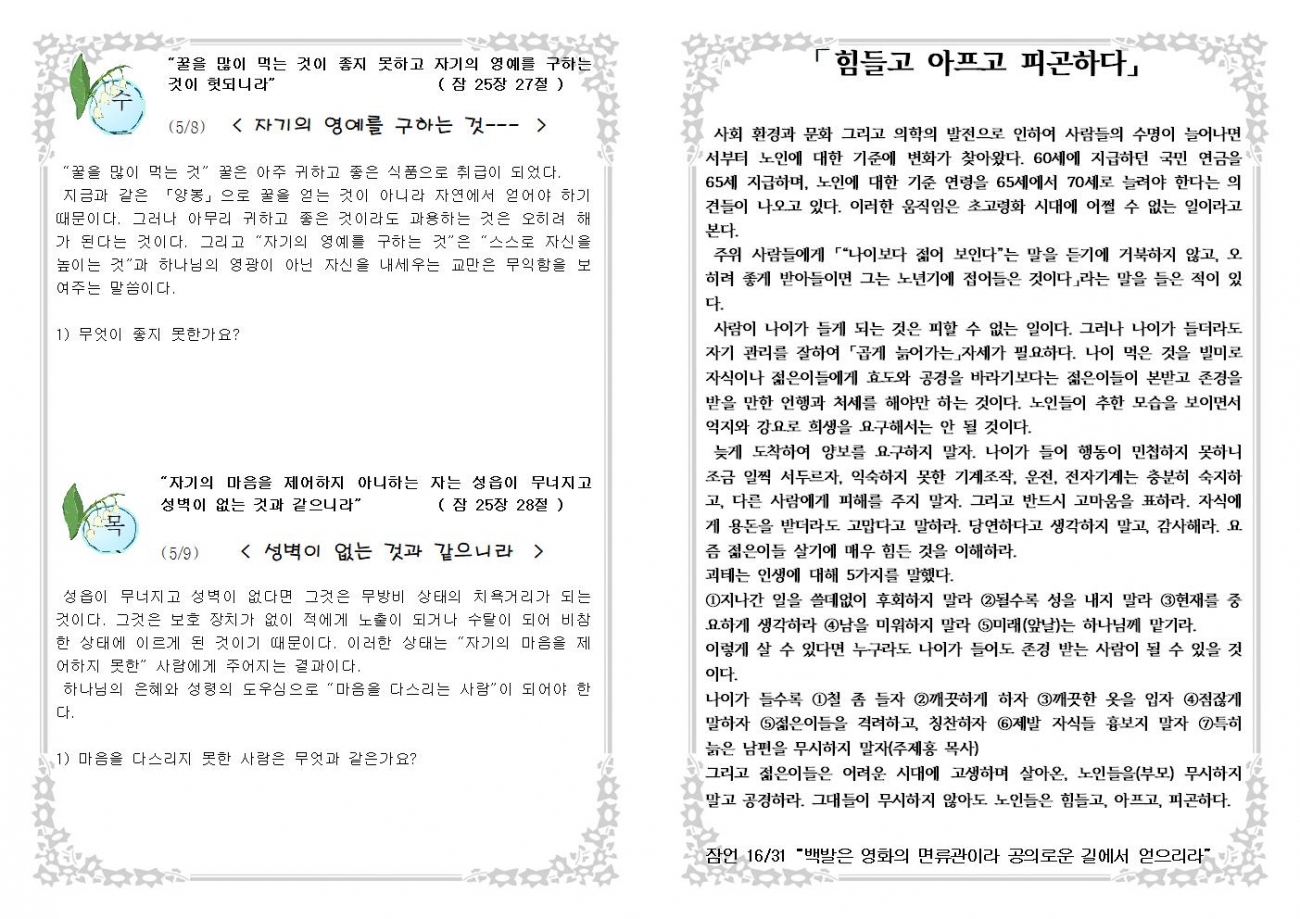 “꿀을 많이 먹는 것이 좋지 못하고 자기의 영예를 구하는
것이 헛되니라” ( 잠 25장 27절 )
수
(5/8) < 자기의 영예를 구하는 것--- >
“꿀을 많이 먹는 것” 꿀은 아주 귀하고 좋은 식품으로 취급이 되었다.
지금과 같은 「양봉」으로 꿀을 얻는 것이 아니라 자연에서 얻어야 하기
때문이다. 그러나 아무리 귀하고 좋은 것이라도 과용하는 것은 오히려 해
가 된다는 것이다. 그리고 “자기의 영예를 구하는 것”은 “스스로 자신을
높이는 것”과 하나님의 영광이 아닌 자신을 내세우는 교만은 무익함을 보
여주는 말씀이다.
1) 무엇이 좋지 못한가요?
“자기의 마음을 제어하지 아니하는 자는 성읍이 무너지고
성벽이 없는 것과 같으니라” ( 잠 25장 28절 )
목
(5/9) < 성벽이 없는 것과 같으니라 >
성읍이 무너지고 성벽이 없다면 그것은 무방비 상태의 치욕거리가 되는
것이다. 그것은 보호 장치가 없이 적에게 노출이 되거나 수탈이 되어 비참
한 상태에 이르게 된 것이기 때문이다. 이러한 상태는 “자기의 마음을 제
어하지 못한” 사람에게 주어지는 결과이다.
하나님의 은혜와 성령의 도우심으로 “마음을 다스리는 사람”이 되어야 한
다.
1) 마음을 다스리지 못한 사람은 무엇과 같은가요?
「힘들고 아프고 피곤하다」
사회 환경과 문화 그리고 의학의 발전으로 인하여 사람들의 수명이 늘어나면
서부터 노인에 대한 기준에 변화가 찾아왔다. 60세에 지급하던 국민 연금을
65세 지급하며, 노인에 대한 기준 연령을 65세에서 70세로 늘려야 한다는 의
견들이 나오고 있다. 이러한 움직임은 초고령화 시대에 어쩔 수 없는 일이라고
본다.
주위 사람들에게 「“나이보다 젊어 보인다”는 말을 듣기에 거북하지 않고, 오
히려 좋게 받아들이면 그는 노년기에 접어들은 것이다」라는 말을 들은 적이 있
다.
사람이 나이가 들게 되는 것은 피할 수 없는 일이다. 그러나 나이가 들더라도
자기 관리를 잘하여 「곱게 늙어가는」자세가 필요하다. 나이 먹은 것을 빌미로
자식이나 젊은이들에게 효도와 공경을 바라기보다는 젊은이들이 본받고 존경을
받을 만한 언행과 처세를 해야만 하는 것이다. 노인들이 추한 모습을 보이면서
억지와 강요로 희생을 요구해서는 안 될 것이다.
늦게 도착하여 양보를 요구하지 말자. 나이가 들어 행동이 민첩하지 못하니
조금 일찍 서두르자, 익숙하지 못한 기계조작, 운전, 전자기계는 충분히 숙지하
고, 다른 사람에게 피해를 주지 말자. 그리고 반드시 고마움을 표하라. 자식에
게 용돈을 받더라도 고맙다고 말하라. 당연하다고 생각하지 말고, 감사해라. 요
즘 젊은이들 살기에 매우 힘든 것을 이해하라.
괴테는 인생에 대해 5가지를 말했다.
①지나간 일을 쓸데없이 후회하지 말라 ②될수록 성을 내지 말라 ③현재를 중
요하게 생각하라 ④남을 미워하지 말라 ⑤미래(앞날)는 하나님께 맡기라.
이렇게 살 수 있다면 누구라도 나이가 들어도 존경 받는 사람이 될 수 있을 것
이다.
나이가 들수록 ①철 좀 들자 ②깨끗하게 하자 ③깨끗한 옷을 입자 ④점잖게
말하자 ⑤젊은이들을 격려하고, 칭찬하자 ⑥제발 자식들 흉보지 말자 ⑦특히
늙은 남편을 무시하지 말자(주제홍 목사)
그리고 젊은이들은 어려운 시대에 고생하며 살아온, 노인들을(부모) 무시하지
말고 공경하라. 그대들이 무시하지 않아도 노인들은 힘들고, 아프고, 피곤하다.
잠언 16/31 “백발은 영화의 면류관이라 공의로운 길에서 얻으리라”